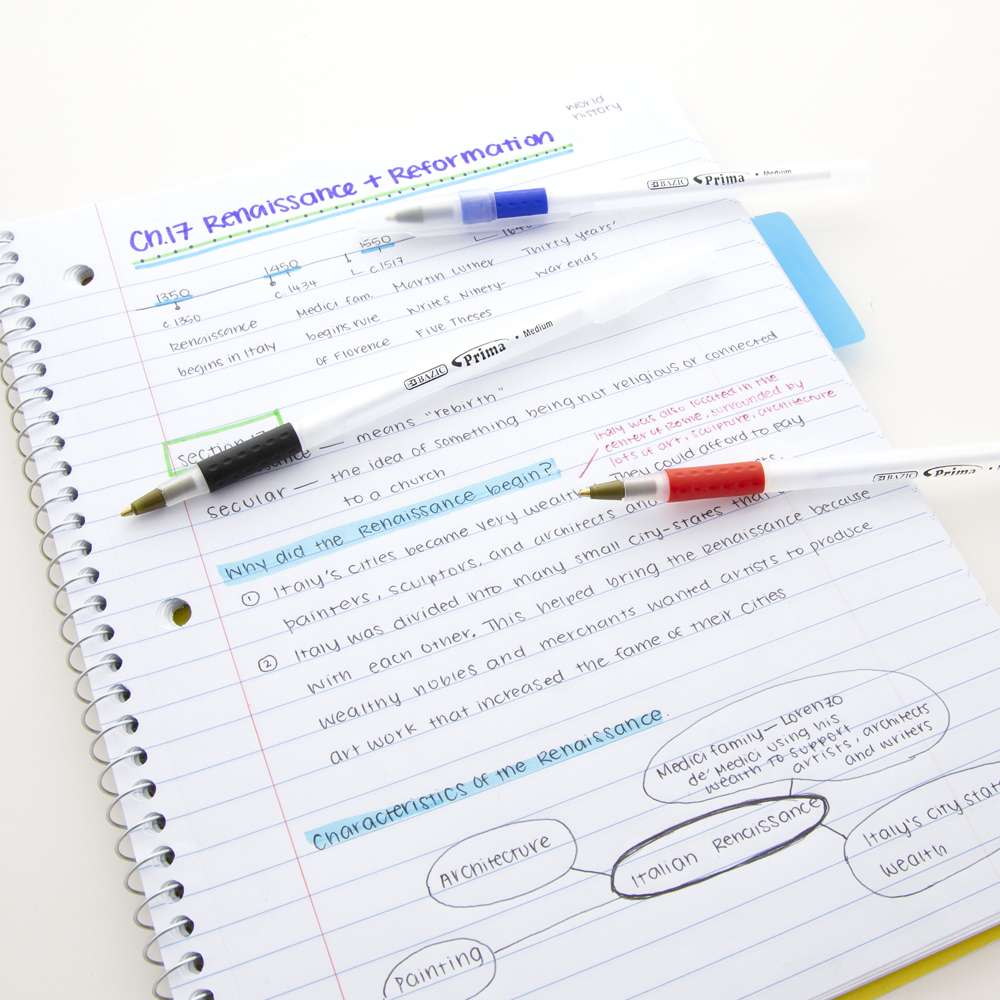 world
history
Ch.17 Renaissance + Reformation
BAZIC Prima • Medium
1350
1450
1550
c 1350
c 1434
c 1517
Renaissance
begins in Italy
Medici fam.
begins rule
of Florence
Martin Luther
writes Ninety-
Five Theses
Thirty years'
war ends
BAZIC Prima • Medium
section
means "rebirth"
secular — the idea of something being not religious or connected
to a church
Italy was also located in the
center of Rome, surrounded by
lots of art, sculpture, architecture
Why did the Renaissance begin?
① Italy's cities became very wealthy They could afford to pay
painters, sculptors, and architects
BAZIC Prima • Medium
② Italy was divided into many small city-states that
with each other. This helped bring the Renaissance because
wealthy nobles and merchants wanted artists to produce
art work that increased the fame of their cities
Characteristics of the Renaissance.
Medici family — Lorenzo
de' Medici using his
wealth to support
artists, architects
and writers
Architecture
Italian Renaissance
Italy's city state
wealth
Painting